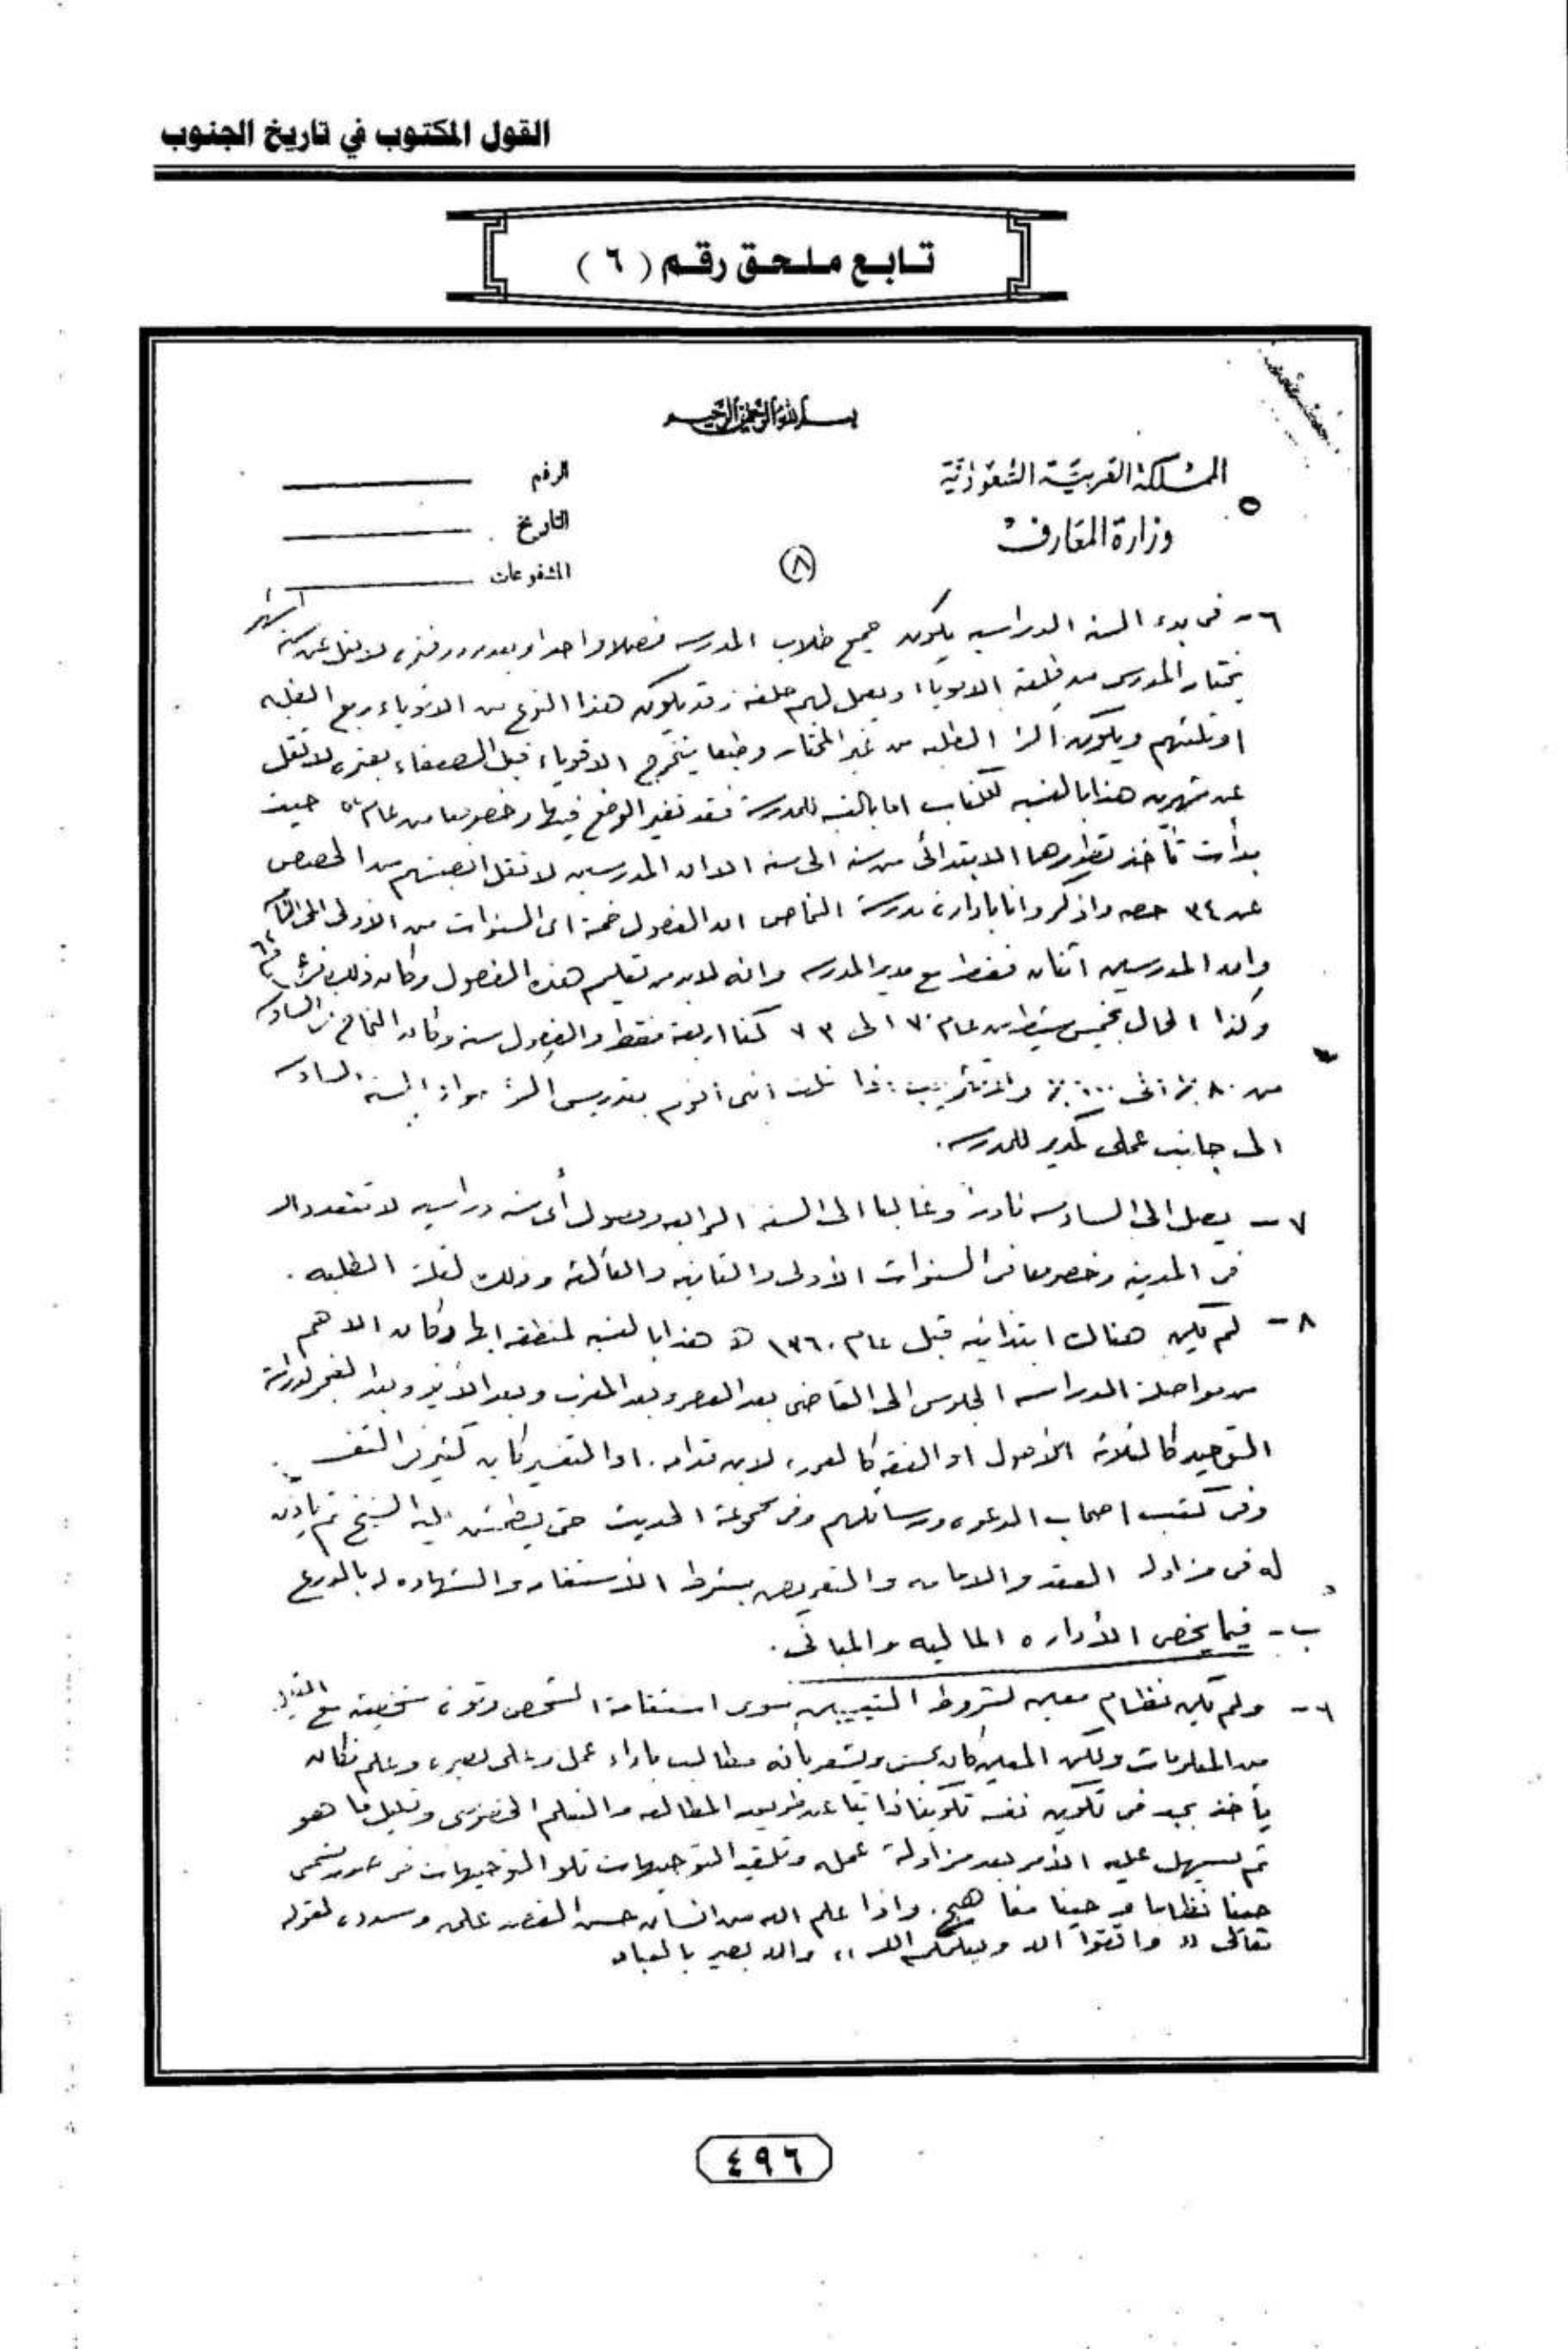 القول المكتوب في تاريخ الجنوب
تابع ملحق رقم ( ٦ )
بسم الله الرحمن الرحيم
المملكة العربية السعودية
وزارة المعارف
الرقم
التاريخ
المشفوعات
(٨)
٦- فى بدء السنه الدراسيه يكون جميع طلاب المدرسه فصلا واحدا وبعد مرور فتره لا تقل عن ستة اشهر
يختار المدرس من طلبته الاقوياء ويعمل لهم حلقه وقد يكون هذا النوع من الاقوياء ربع الطلبه
او ثلثهم ويكون اكثر الطلبه من غير المختار وطبعا يتخرج الاقوياء قبل الضعفاء بفتره لا تقل
عن شهرين هذا بالنسبه للكتاب اما بالنسبه للمدرسة فقد تغير الوضع فيها وخصوصا من عام حيث
بدأت تأخذ تطورها الابتدائى من سنه الى سنه الا ان المدرسين لا تقل انصبتهم من الحصص
عن ٣٤ حصه واذكر وانا بادارة مدرسة النماص ان الفصول خمسة اى السنوات من الاولى الى
وان المدرسين اثنان فقط مع مدير المدرسه وانه لابد من تعليم هذه الفصول وكان ذلك
وكذا الحال بخميس مشيط من عام ٧٠ الى ٧٣ كنا اربعة فقط والفصول سته وكان النجاح فى السادسه
من ٨٠٪ الى ١٠٠٪ اننى اقوم بتدريس اكثر مواد السنه السادسه
الى جانب عملى كمدير للمدرسه.
٧- يصل الى السادسه نادرا وغالبا الى السنه الرابعه وفصول أى سنه دراسيه لا تتعدد الا
فى المدينه وخصوصا فى السنوات الأولى والثانيه والثالثة وذلك لقلة الطلبه.
٨- لم يكن هناك ابتدائيه قبل عام ١٣٦٠ هـ هذا بالنسبه لمنطقة ابها وكان الاهم
من مواصلة الدراسه الجلوس الى القاضى بعد العصر وبعد المغرب وبعد الفجر لدراسة
التوحيد كالثلاثة الأصول او الفقه كالعمده لابن قدامه. او التفسير كابن كثير
وفى كتب اصحاب الدعوه ورسائلهم وفى مجموعة الحديث حتى يطمئن اليه الشيخ ثم يأذن
له فى مزاولة العقد والامامه بشرط الأستقامه والشهاده له بالورع
ب- فيما يخص الأداره الماليه والمبانى.
١- ولم يكن نظام معين لشروط التعيين سوى استقامة الشخص وقوة شخصيته مع القليل
من المعلومات ولكن المعين كان يحس ويشعر بأنه مطالب باداء عمل وعلى بصيره وعلم فكان
يأخذ بجد فى تكوين نفسه تكوينا ذاتيا عن طريق المطالعه والتعلم الخصوصى وقليل ما هو
ثم يسهل عليه الأمر بعد مزاولة عمله وتلقيه التوجيهات تلو التوجيهات فى صور تسمى
حينا نظاما وحينا مناهج. واذا علم الله من انسان حسن القصد علمه وسدده لقوله
تعالى « واتقوا الله ويعلمكم الله » والله بصير بالعباد
٤٩٦